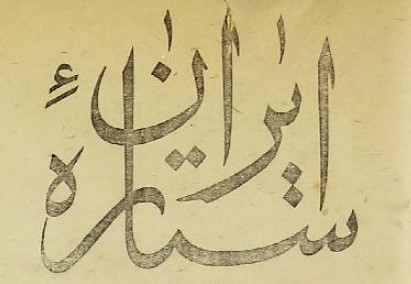 ستارهٔ
ایران